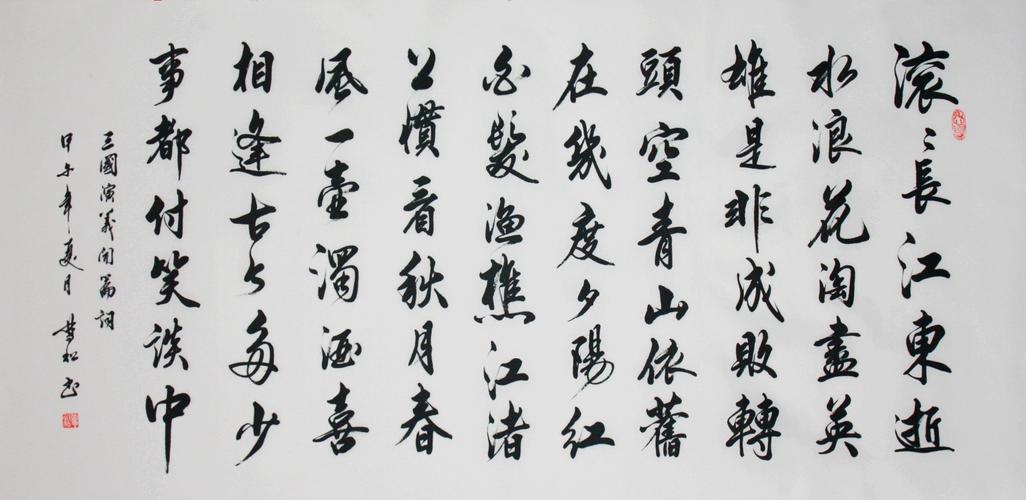 滚〻長江東逝
水浪花淘盡英
雄是非成敗轉
頭空青山依舊
在幾度夕陽紅
白髮漁樵江渚
上慣看秋月春
風一壺濁酒喜
相逢古今多少
事都付笑談中
三國演義開篇詞
甲午年夏月 松書